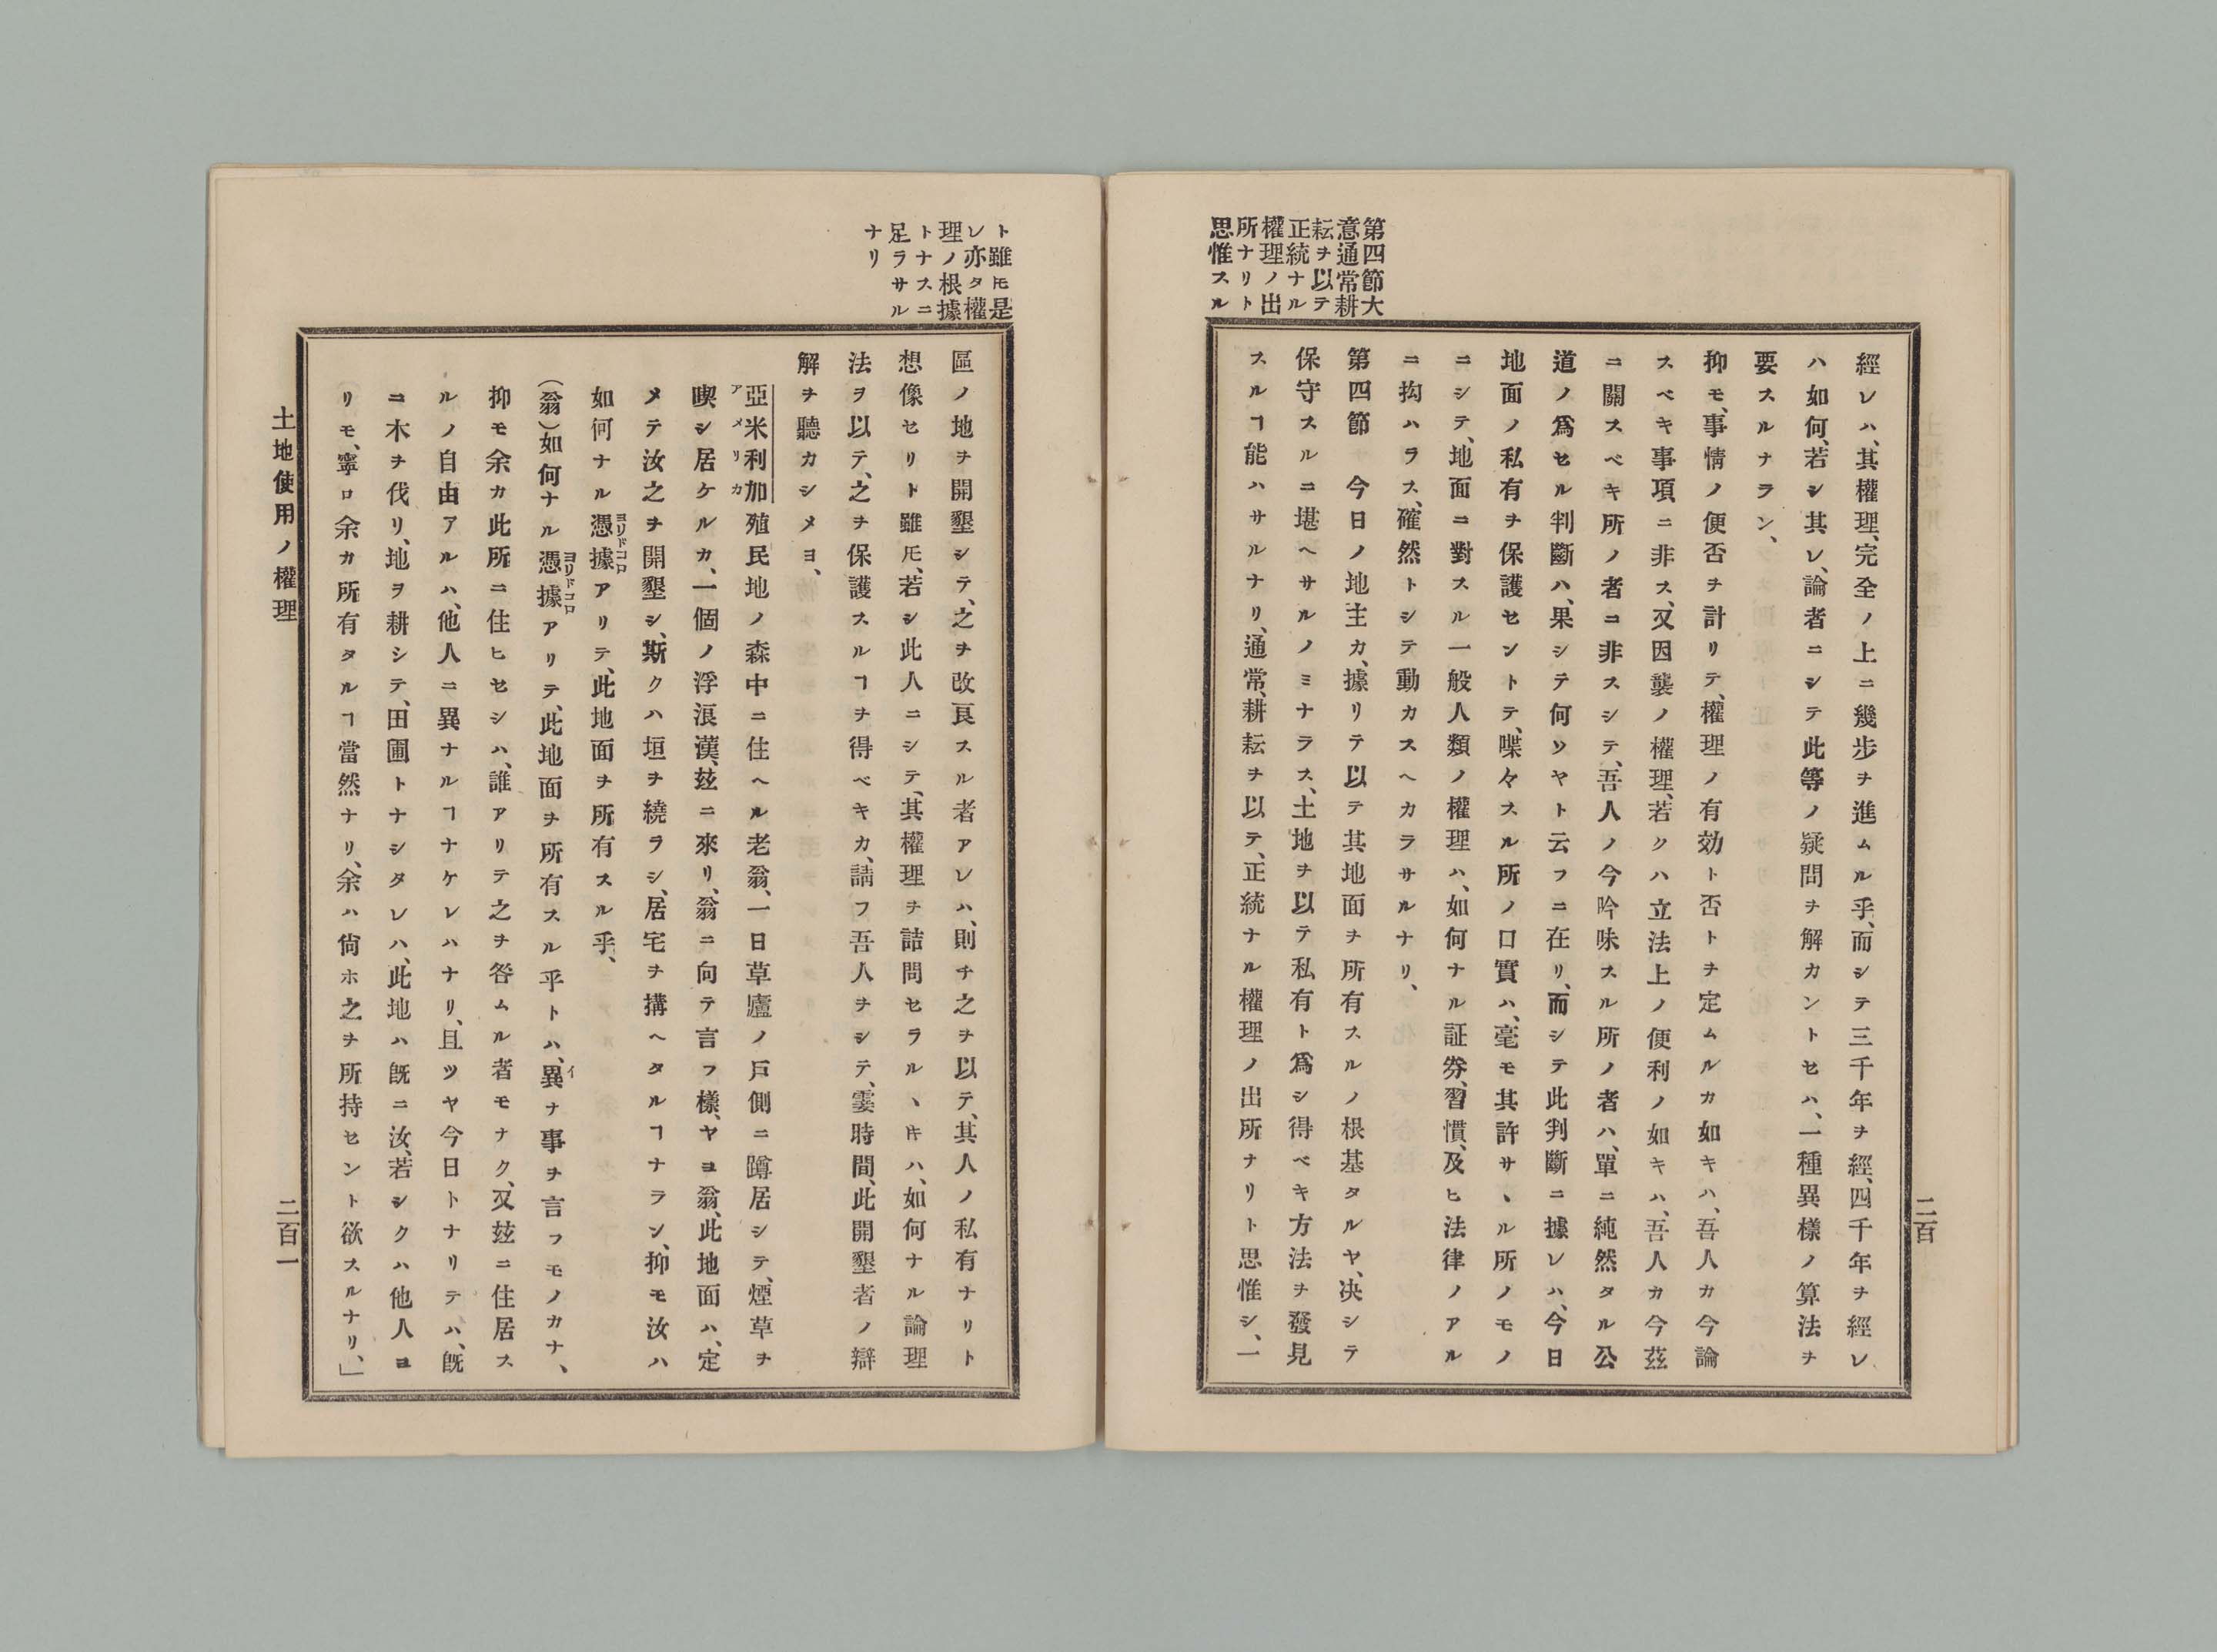 第四節大
意通常耕
耘ヲ以テ
正統ナル
權理ノ出
所ナリト
思惟スル
經レハ、其權理、完全ノ上ニ幾步ヲ進ムル乎、而シテ三千年ヲ經、四千年ヲ經レ
ハ如何、若シ其レ、論者ニシテ此等ノ疑問ヲ解カントセハ、一種異樣ノ算法ヲ
要スルナラン、
抑モ、事情ノ便否ヲ計リテ、權理ノ有効ト否トヲ定ムルカ如キハ、吾人カ今論
スベキ事項ニ非ス、又因襲ノ權理、若クハ立法上ノ便利ノ如キハ、吾人カ今茲
ニ關スベキ所ノ者ニ非スシテ、吾人ノ今吟味スル所ノ者ハ、單ニ純然タル公
道ノ爲セル判斷ハ、果シテ何ソヤト云フニ在リ、而シテ此判斷ニ據レハ、今日
地面ノ私有ヲ保護セントテ、喋々スル所ノ口實ハ、毫モ其許サヽル所ノモノ
ニシテ、地面ニ對スル一般人類ノ權理ハ、如何ナル証劵、習慣、及ヒ法律ノアル
ニ拘ハラス、確然トシテ動カスヘカラサルナリ、
第四節　今日ノ地主カ、據リテ以テ其地面ヲ所有スルノ根基タルヤ、决シテ
保守スルニ堪ヘサルノミナラス、土地ヲ以テ私有ト爲シ得ベキ方法ヲ發見
スルヿ能ハサルナリ、通常、耕耘ヲ以テ、正統ナル權理ノ出所ナリト思惟シ、一
二百
ト雖𪜈是
レ亦タ權
理ノ根據
トナスニ
足ラサル
ナリ
區ノ地ヲ開墾シテ、之ヲ改良スル者アレハ、則チ之ヲ以テ、其人ノ私有ナリト
想像セリト雖𪜈、若シ此人ニシテ、其權理ヲ詰問セラルヽ𪜈ハ、如何ナル論理
法ヲ以テ、之ヲ保護スルヿヲ得ベキカ、請フ吾人ヲシテ、霎時間、此開墾者ノ辯
解ヲ聽カシメヨ、
亞米利加殖民地ノ森中ニ住ヘル老翁、一日草廬ノ戶側ニ蹲居シテ、煙草ヲ
アメリカ
喫シ居ケルカ、一個ノ浮浪漢、玆ニ來リ、翁ニ向テ言フ樣、ヤヨ翁、此地面ハ、定
メテ汝之ヲ開墾シ、斯クハ垣ヲ繞ラシ、居宅ヲ搆ヘタルヿナラン、抑モ汝ハ
如何ナル憑據アリテ、此地面ヲ所有スル乎、
ヨリドコロ
(翁)如何ナル憑據アリテ、此地面ヲ所有スル乎トハ、異ナ事ヲ言フモノカナ、
ヨリドコロ
イ
抑モ余カ此所ニ住ヒセシハ、誰アリテ之ヲ咎ムル者モナク、又玆ニ住居ス
ルノ自由アルハ、他人ニ異ナルヿナケレハナリ、且ツヤ今日トナリテハ、既
ニ木ヲ伐リ、地ヲ耕シテ、田圃トナシタレハ、此地ハ既ニ汝、若シクハ他人ヨ
リモ、寧ロ余カ所有タルヿ當然ナリ、余ハ尙ホ之ヲ所持セント欲スルナリ、」
土地使用ノ權理
二百一